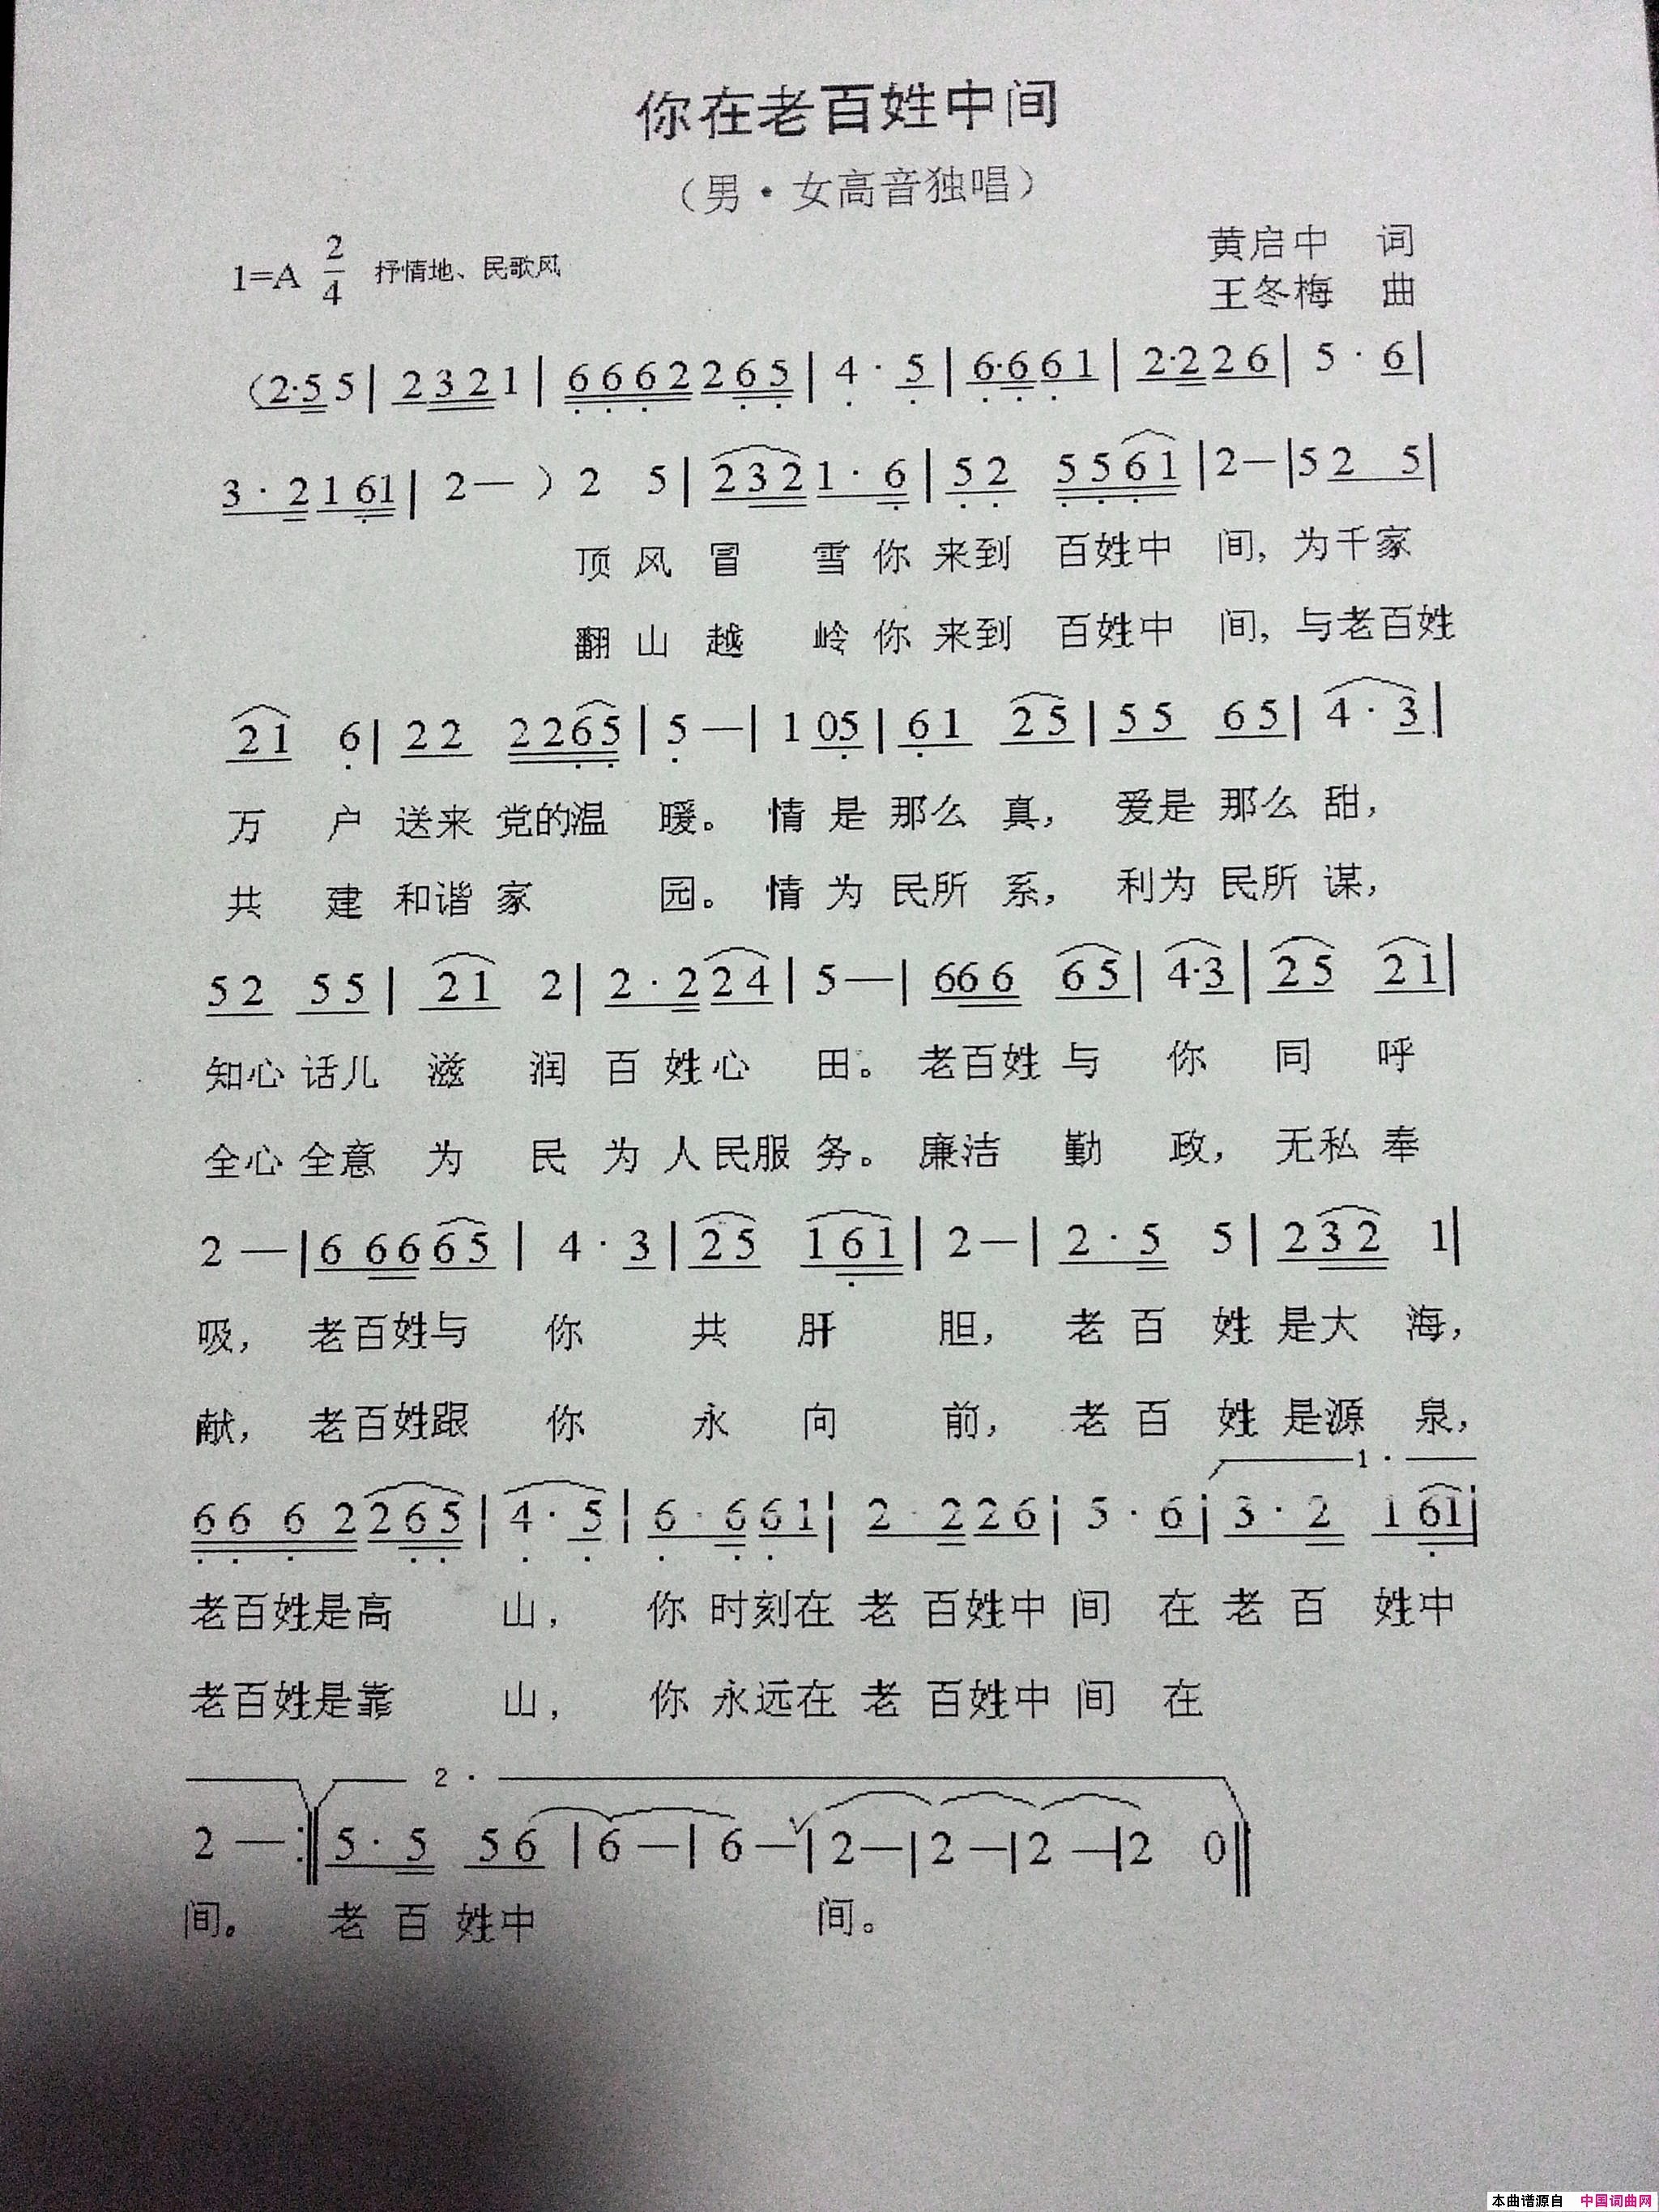 你在老百姓中间
（男·女高音独唱）
1=A 2/4 抒情地、民歌风
黄启中 词
王冬梅 曲
（2·5 5 | 2 3 2 1 | 6 6 6 2 2 6 5 | 4 · 5 | 6·6 6 1 | 2·2 2 6 | 5 · 6 |
3 · 2 1 6 1 | 2 — ） 2 5 | 2 3 2 1 · 6 | 5 2 5 5 6 1 | 2 — | 5 2 5 |
顶 风 冒 雪 你 来到 百姓中 间, 为千家
翻 山 越 岭 你 来到 百姓中 间, 与老百姓
2 1 6 | 2 2 2 2 6 5 | 5 — | 1 0 5 | 6 1 2 5 | 5 5 6 5 | 4 · 3 |
万 户 送来 党的温 暖。 情 是 那么 真, 爱是 那么 甜,
共 建 和谐 家 园。 情 为 民所 系, 利为 民所 谋,
5 2 5 5 | 2 1 2 | 2 · 2 2 4 | 5 — | 6 6 6 6 5 | 4·3 | 2 5 2 1 |
知心 话儿 滋 润 百 姓 心 田。 老百姓 与 你 同 呼
全心 全意 为 民 为 人 民服 务。 廉洁 勤 政, 无私 奉
2 — | 6 6 6 6 5 | 4 · 3 | 2 5 1 6 1 | 2 — | 2 · 5 5 | 2 3 2 1 |
吸, 老百姓与 你 共 肝 胆, 老 百 姓 是大 海,
献, 老百姓跟 你 永 向 前, 老 百 姓 是源 泉,
1 ·
6 6 6 2 2 6 5 | 4 · 5 | 6 · 6 6 1 | 2 · 2 2 6 | 5 · 6 | 3 · 2 1 6 1 |
老百姓是高 山, 你 时刻在 老 百姓中 间 在 老 百 姓中
老百姓是靠 山, 你 永远在 老 百姓中 间 在
2 ·
2 — :‖ 5 · 5 5 6 | 6 — | 6 — | 2 — | 2 — | 2 — | 2 0 ‖
间。 老 百 姓中 间。
本曲谱源自 中国词曲网